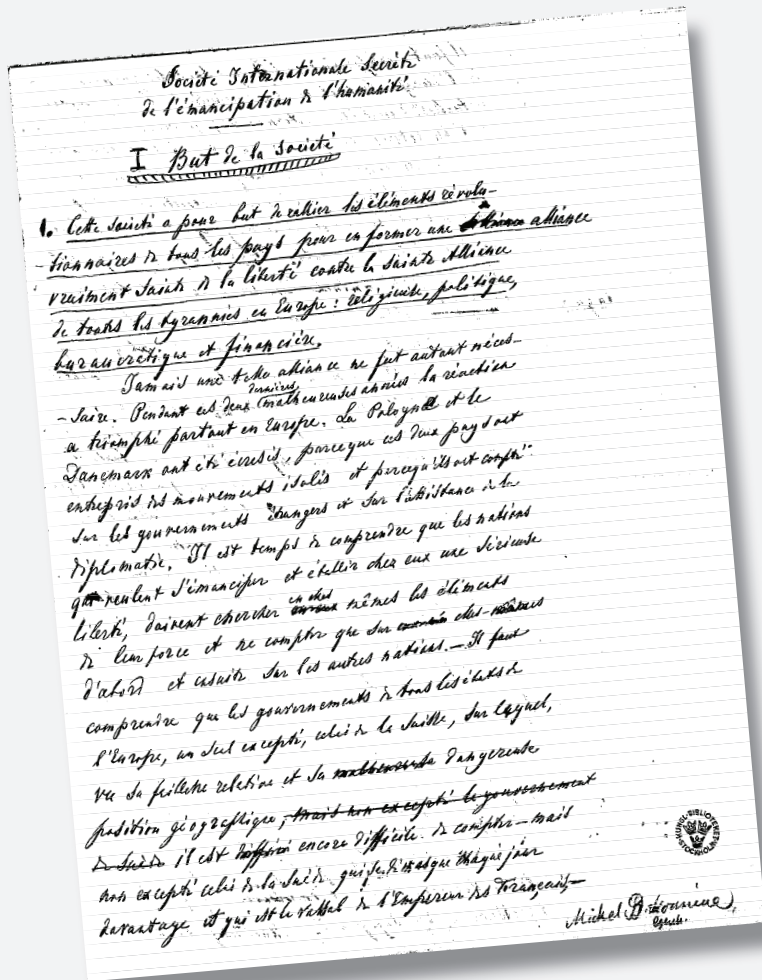 Société Internationale Secrète
de l'émancipation de l'humanité
I But de la Société
1. Cette société a pour but de rallier les éléments révolu-
tionnaires de tous les pays pour en former une alliance
vraiment Sainte de la liberté contre la Sainte Alliance
de toutes les tyrannies en Europe: religieuse, politique,
bureaucratique et financière.
Jamais une telle alliance ne fut autant néces-
-saire. Pendant ces deux dernières malheureuses années la réaction
a triomphé partout en Europe. La Pologne et le
Danemark ont été écrasés, parceque ces deux pays ont
entrepris des mouvements isolés et parcequ'ils ont compté
sur les gouvernements étrangers et sur l'assistance de la
diplomatie. Il est temps de comprendre que les nations
qui veulent s'émanciper et établir chez eux une sérieuse
liberté, doivent chercher en elles mêmes les éléments
de leur force et ne compter que sur elles-mêmes
d'abord et ensuite sur les autres nations. — Il faut
comprendre que les gouvernements de tous les états de
l'Europe, un seul excepté, celui de la Suisse, sur lequel,
vu sa faiblesse relative et sa malheureuse dangereuse
position géographique, mais non excepté le gouvernement
de Suède il est encore difficile de compter — mais
non excepté celui de la Suède qui se démasque chaque jour
davantage et qui est le vassal de l'Empereur des Français, —
Michel
KUNGL. BIBLIOTEKET
STOCKHOLM